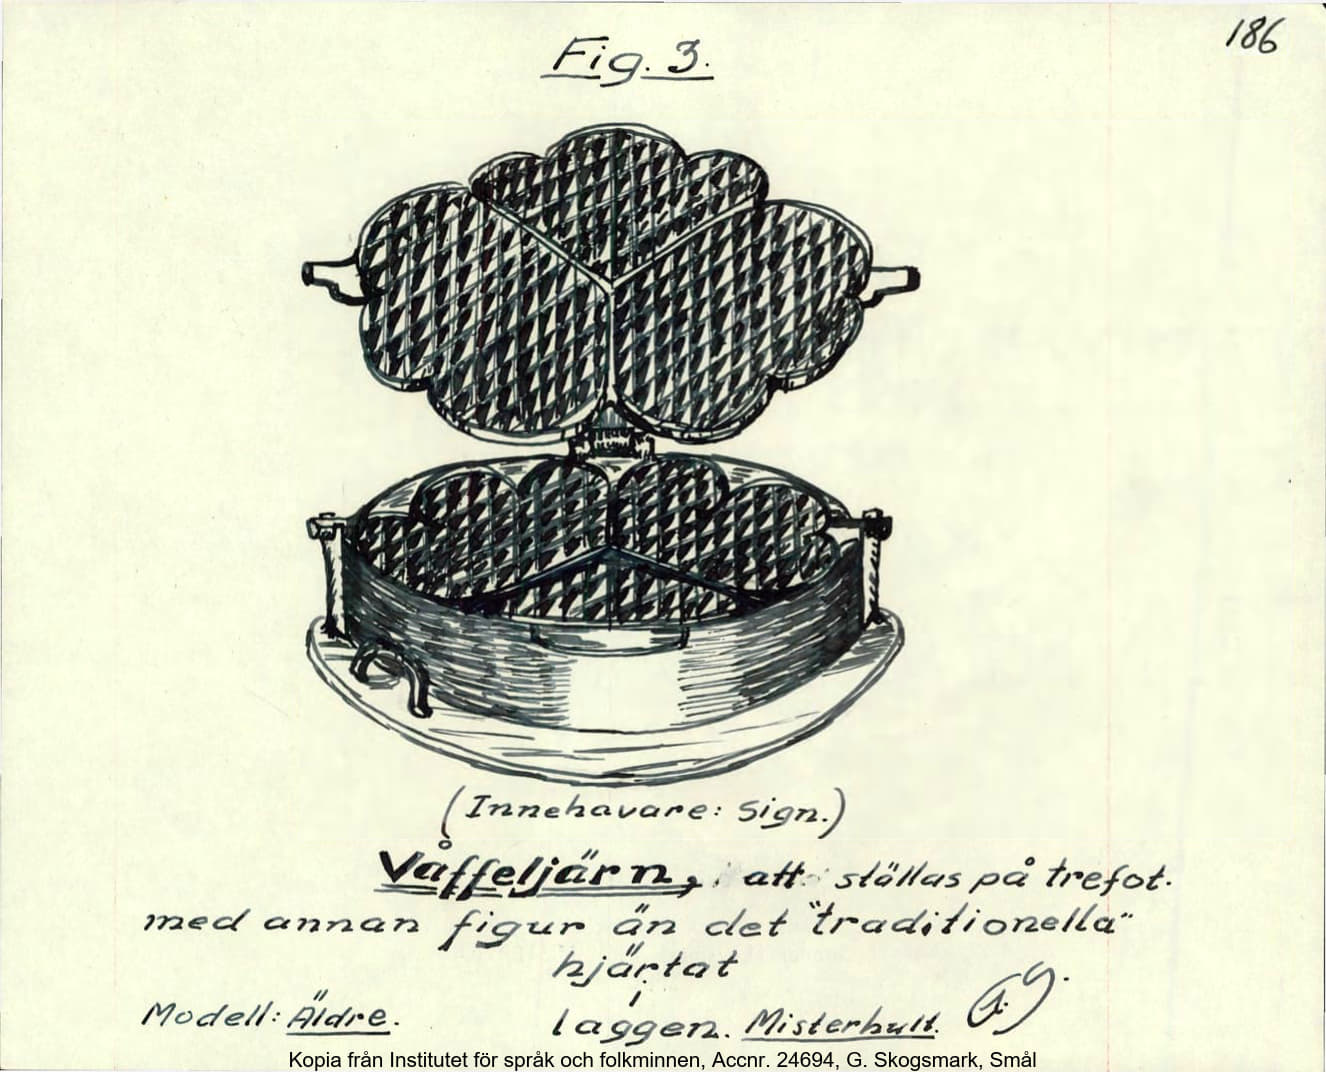 186
Fig. 3.
(Innehavare: Sign.)
Våffeljärn, att ställas på trefot.
med annan figur än det "traditionella"
hjärtat
i
Modell: Äldre. laggen. Misterhult.
Kopia från Institutet för språk och folkminnen, Accnr. 24694, G. Skogsmark, Smål